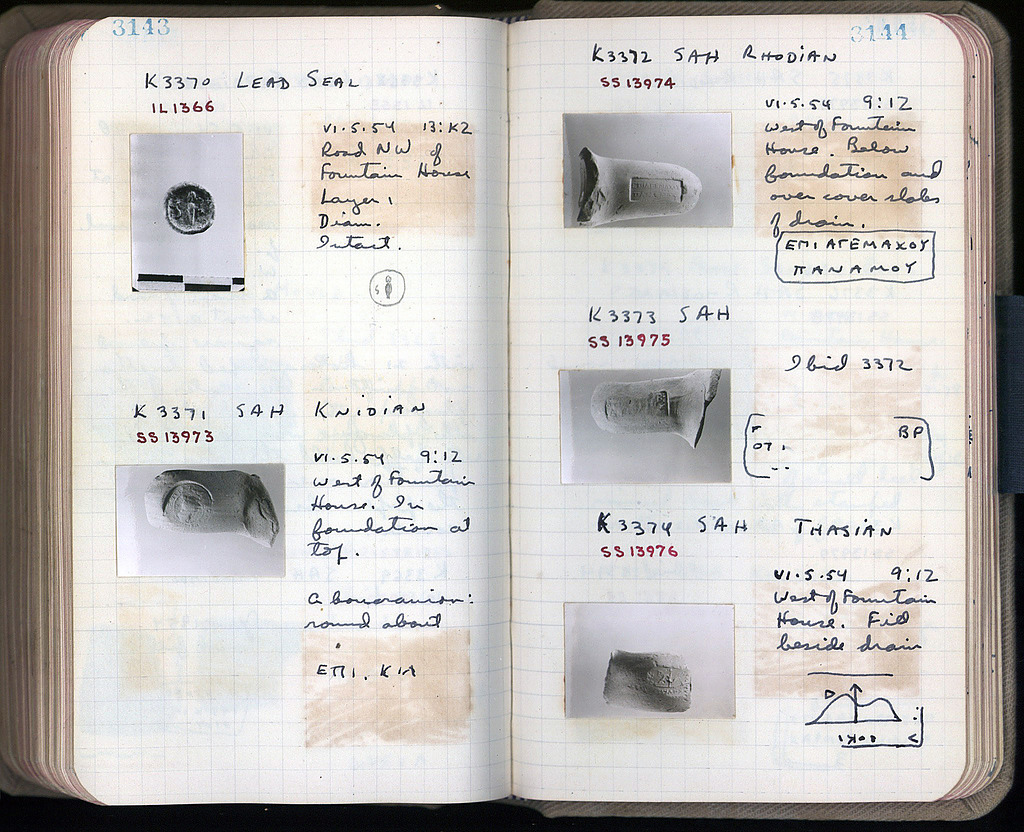 3143
K3370 LEAD SEAL
IL1366
VI.5.54 13:K2
Road NW of
Fountain House
Layer 1
Diam.
Intact.
S
K3371 SAH KNIDIAN
SS 13973
VI.5.54 9:12
West of Fountain
House. In
foundation at
top.
A boucranion:
round about
ΕΠΙ. ΚΙΛ
3144
K3372 SAH RHODIAN
SS13974
VI.5.54 9:12
West of Fountain
House. Below
foundation and
over cover slabs
of drain.
ΕΠΙ ΑΓΕΜΑΧΟΥ
ΠΑΝΑΜΟΥ
K3373 SAH
SS 13975
Ibid 3372
Γ ΒΡ
ΟΤΙ
K3374 SAH THASIAN
SS 13976
VI.5.54 9:12
West of Fountain
House. Fill
beside drain